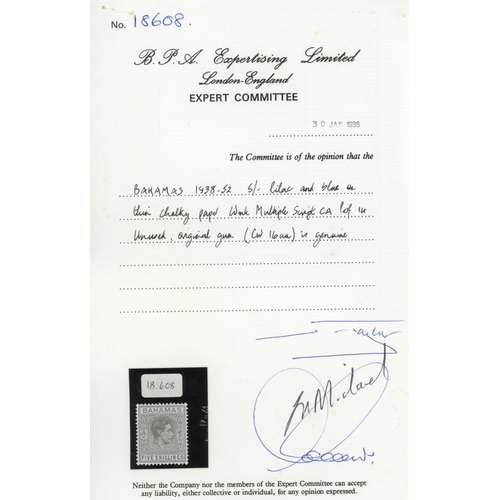 No. 18608.
B. P. A. Expertising Limited
London-England
EXPERT COMMITTEE
30 JAN 1998
The Committee is of the opinion that the
BAHAMAS 1938-52 5/- lilac and blue on
thin chalky paper Wmk Multiple Script CA Perf 14
Unused, original gum (CW 16aa) is genuine
18.608
BAHAMAS
FIVE SHILLINGS
Neither the Company nor the members of the Expert Committee can accept
any liability, either collective or individual, for any opinion expressed.